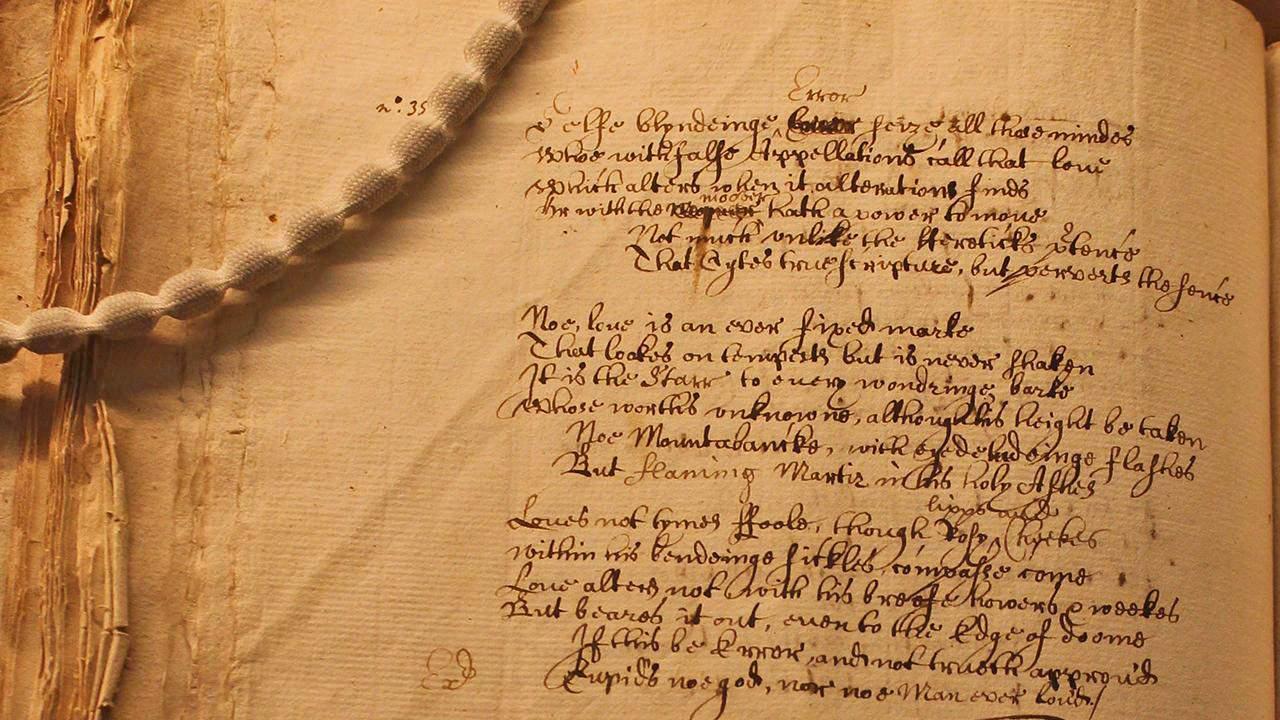 Error
n°. 35
Selfe blyndeinge seize all those mindes
Whoe with false Appellations call that love
Which alters when it alterations finds
Or with the mover hath a power to move
Not much unlike the Hereticks p̱tence
That Cytes true scripture, but perverts the sence
Noe, love is an ever fixed marke
That lookes on tempests but is never shaken
It is the Starr to every wondringe barke
Whose worthe's unknowne, although his height be taken
Noe Mountabancke, with eyedeludeinge flashes
But flameing Martir in his holy Ashes
lipps and
Loves not tymes ffoole, though Rosy Cheekes
within his bendeinge sickles compasse come
Love alters not with his breefe howers & weekes
But beares it out, even to the Edge of doome
If this be Error, and not trueth approv'd
Cupids noe god, nor noe Man ever lov'd./